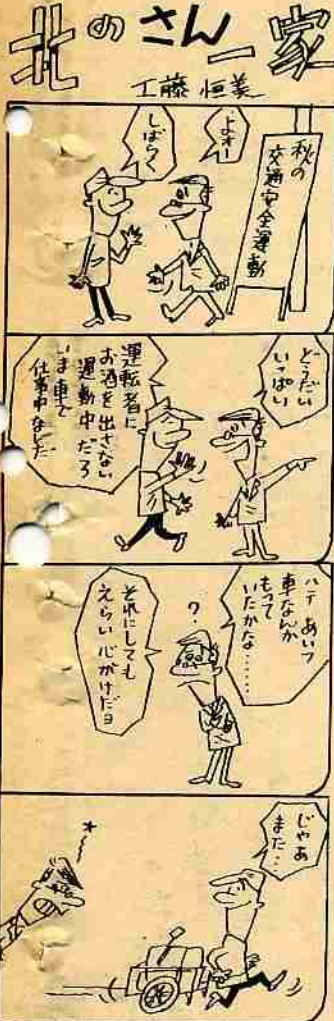 北のさん一家
工藤恒美
秋の
交通安全運動
よオー
しばらく
どうだい
いっぱい
運転者に
お酒を出さない
運動中だろ
いま車で
仕事中なんだ
ハテ あいつ
車なんか
もって
いたかな……
?
それにしても
えらい心がけだヨ
じゃあ
また‥